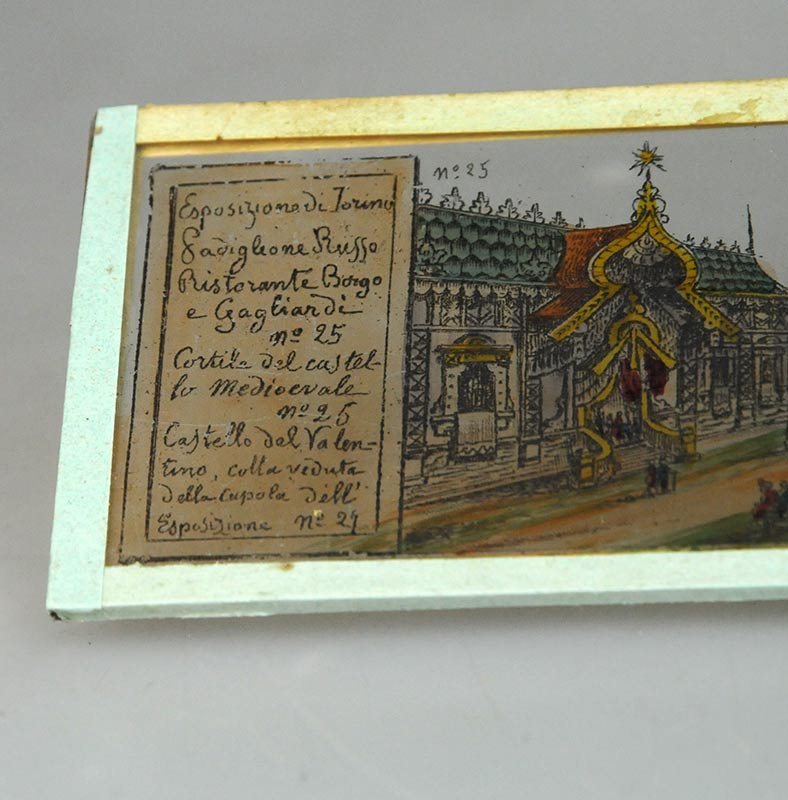 Esposizione di Torino
Padiglione Russo
Ristorante Borgo
e Gagliardi
nº 25
Cortile del castel-
lo medioevale
nº 25
Castello del Valen-
tino, colla veduta
della cupola dell'
Esposizione nº 27
nº 25